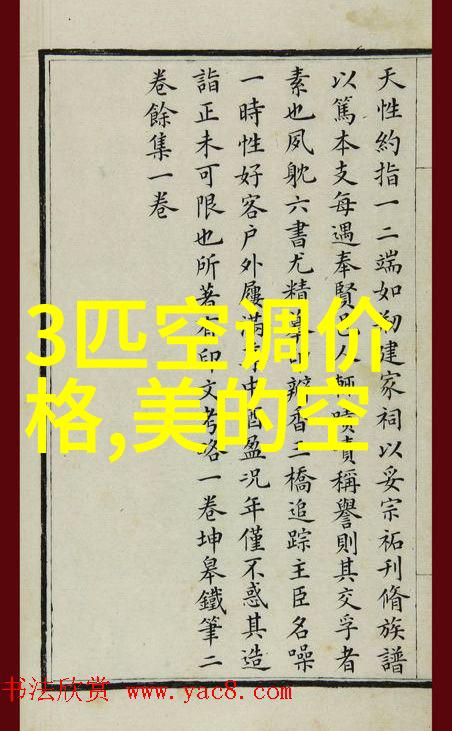 天性約指一二端如初建家祠以妥宗祏刊脩族譜
以篤本支每遇奉賢邑人輒嘖嘖稱譽則其交孚者
素也夙躭六書尤精辦香三橋追踪主臣名噪
一時性好客户外屨滿中酒盈況年僅不惑其造
詣正未可限也所著有印文考略一卷坤皋鐵筆二
卷餘集一卷
3匹空调价
格,美的空
书法欣赏 www.yac8.com